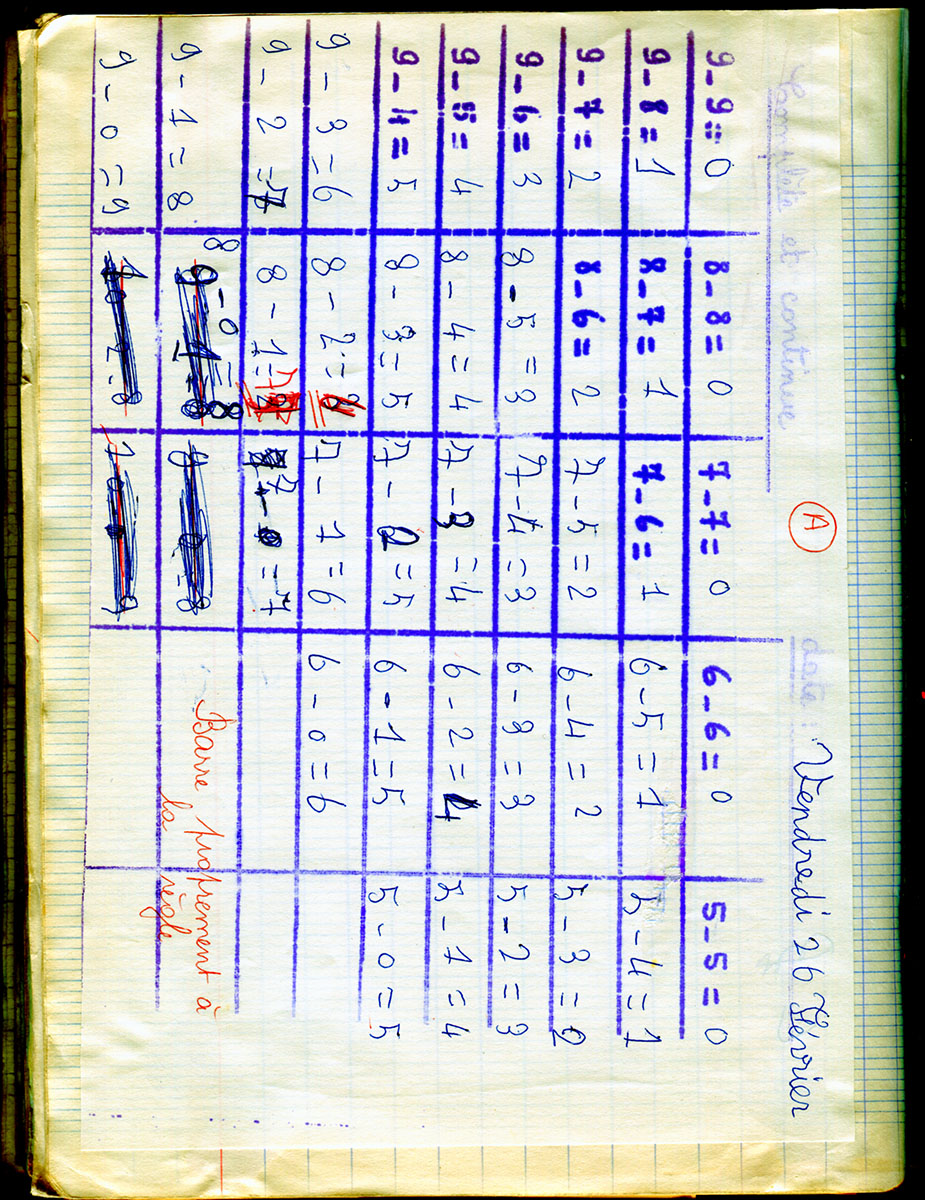 date : Vendredi 26 Février
Complète et continue
A
9-9=0 8-8=0 7-7=0 6-6=0 5-5=0
9-8=1 8-7=1 7-6=1 6-5=1 5-4=1
9-7=2 8-6=2 7-5=2 6-4=2 5-3=2
9-6=3 8-5=3 7-4=3 6-3=3 5-2=3
9-5=4 8-4=4 7-3=4 6-2=4 5-1=4
9-4=5 8-3=5 7-2=5 6-1=5 5-0=5
9-3=6 8-2=6 7-1=6 6-0=6
9-2=7 8-1=7 7-0=7
9-1=8 8-0=8
9-0=9
Barre proprement à
la
règle